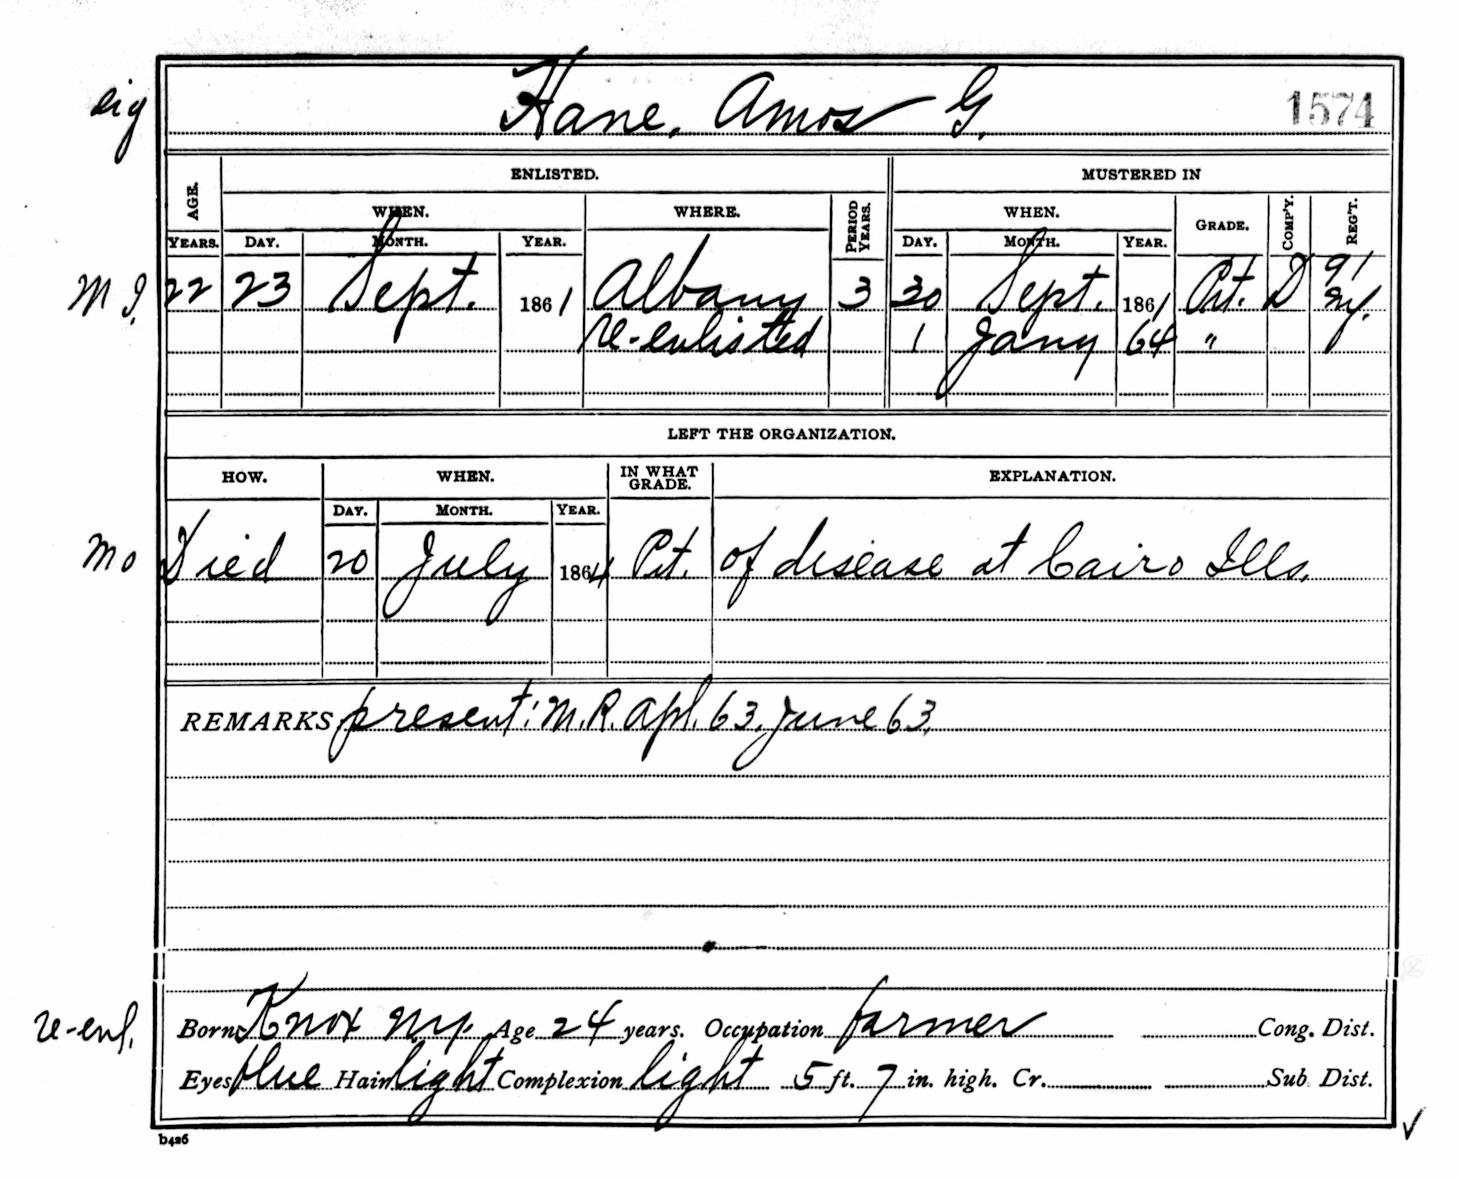 sig Hane, Amos G. 1574
ENLISTED. MUSTERED IN
AGE. WHEN. WHERE. PERIOD YEARS. WHEN. GRADE. COMP'Y. REG'T.
YEARS. DAY. MONTH. YEAR. DAY. MONTH. YEAR.
M I. 22 23 Sept. 1861 Albany 3 30 Sept. 1861 Pvt. D 91 Ny.
re-enlisted 1 Jany 64 "
LEFT THE ORGANIZATION.
HOW. WHEN. IN WHAT GRADE. EXPLANATION.
DAY. MONTH. YEAR.
Mo Died 20 July 1864 Pvt. of disease at Cairo Ills.
REMARKS present: M.R. Apl. 63. June 63.
re-enl. Born Knox Ny. Age 24 years. Occupation farmer Cong. Dist.
Eyes blue Hair light Complexion light 5 ft. 7 in. high. Cr. Sub. Dist.
b426